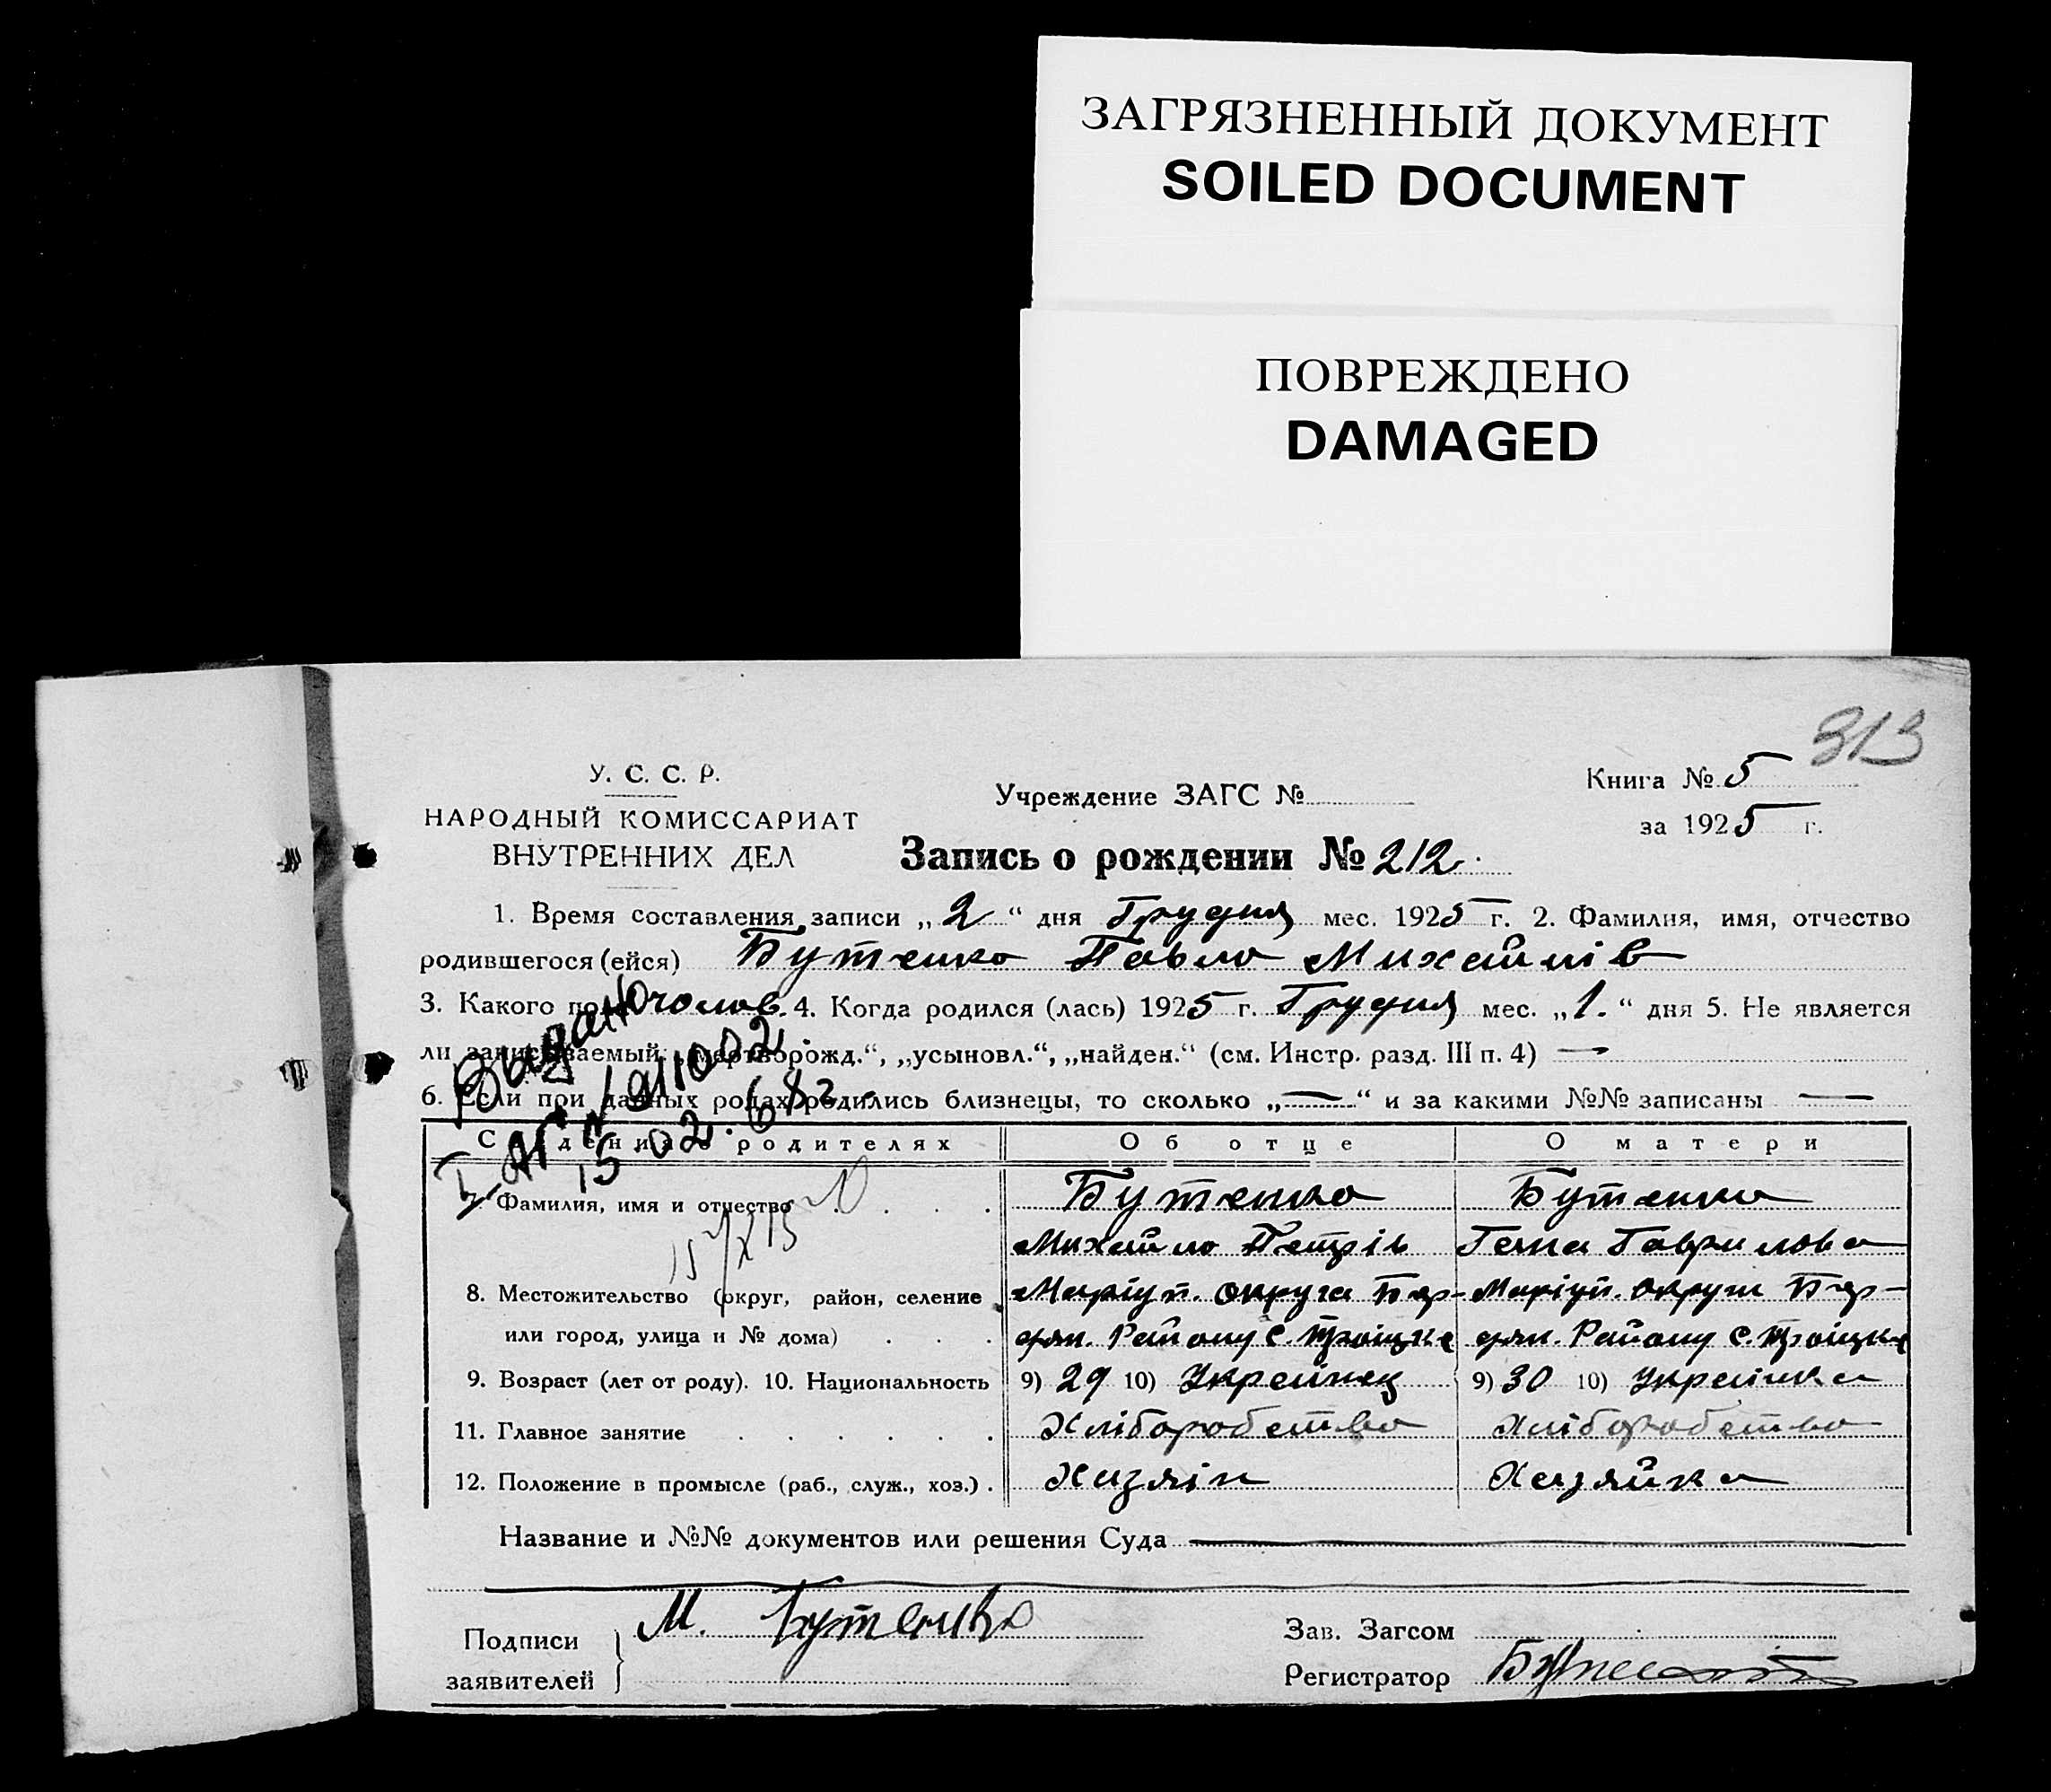 ЗАГРЯЗНЕННЫЙ ДОКУМЕНТ
SOILED DOCUMENT
ПОВРЕЖДЕНО
DAMAGED
313
У. С. С. Р.
НАРОДНЫЙ КОМИССАРИАТ
ВНУТРЕННИХ ДЕЛ
Учреждение ЗАГС №
Книга № 5
за 1925 г.
Запись о рождении № 212.
1. Время составления записи „2“ дня Грудня мес. 1925 г. 2. Фамилия, имя, отчество
родившегося (ейся) Бутенко Павло Михайлів
3. Какого пола чолов. 4. Когда родился (лась) 1925 г. Грудня мес. „1.“ дня 5. Не является
ли записываемый: „мертворожд.“, „усыновл.“, „найден.“ (см. Инстр. разд. III п. 4) —
6. Если при данных родах родились близнецы, то сколько „—“ и за какими №№ записаны —
Выдано
15.02.68г.
Сведения о родителях Об отце О матери
7. Фамилия, имя и отчество Бутенко Бутенко
Михайло Петрів Гаврилова
8. Местожительство (округ, район, селение Маріуп. округа Бер- Маріуп. округи Бер-
или город, улица и № дома) дян. Району с. Троіцке дян. Району с. Троіцке
9. Возраст (лет от роду). 10. Национальность 9) 29 10) Украінец 9) 30 10) Украінка
11. Главное занятие Хліборобство Хліборобство
12. Положение в промысле (раб., служ., хоз.) Хазяін Хазяйка
Название и №№ документов или решения Суда
Подписи
заявителей
М. Бутенко
Зав. Загсом
Регистратор